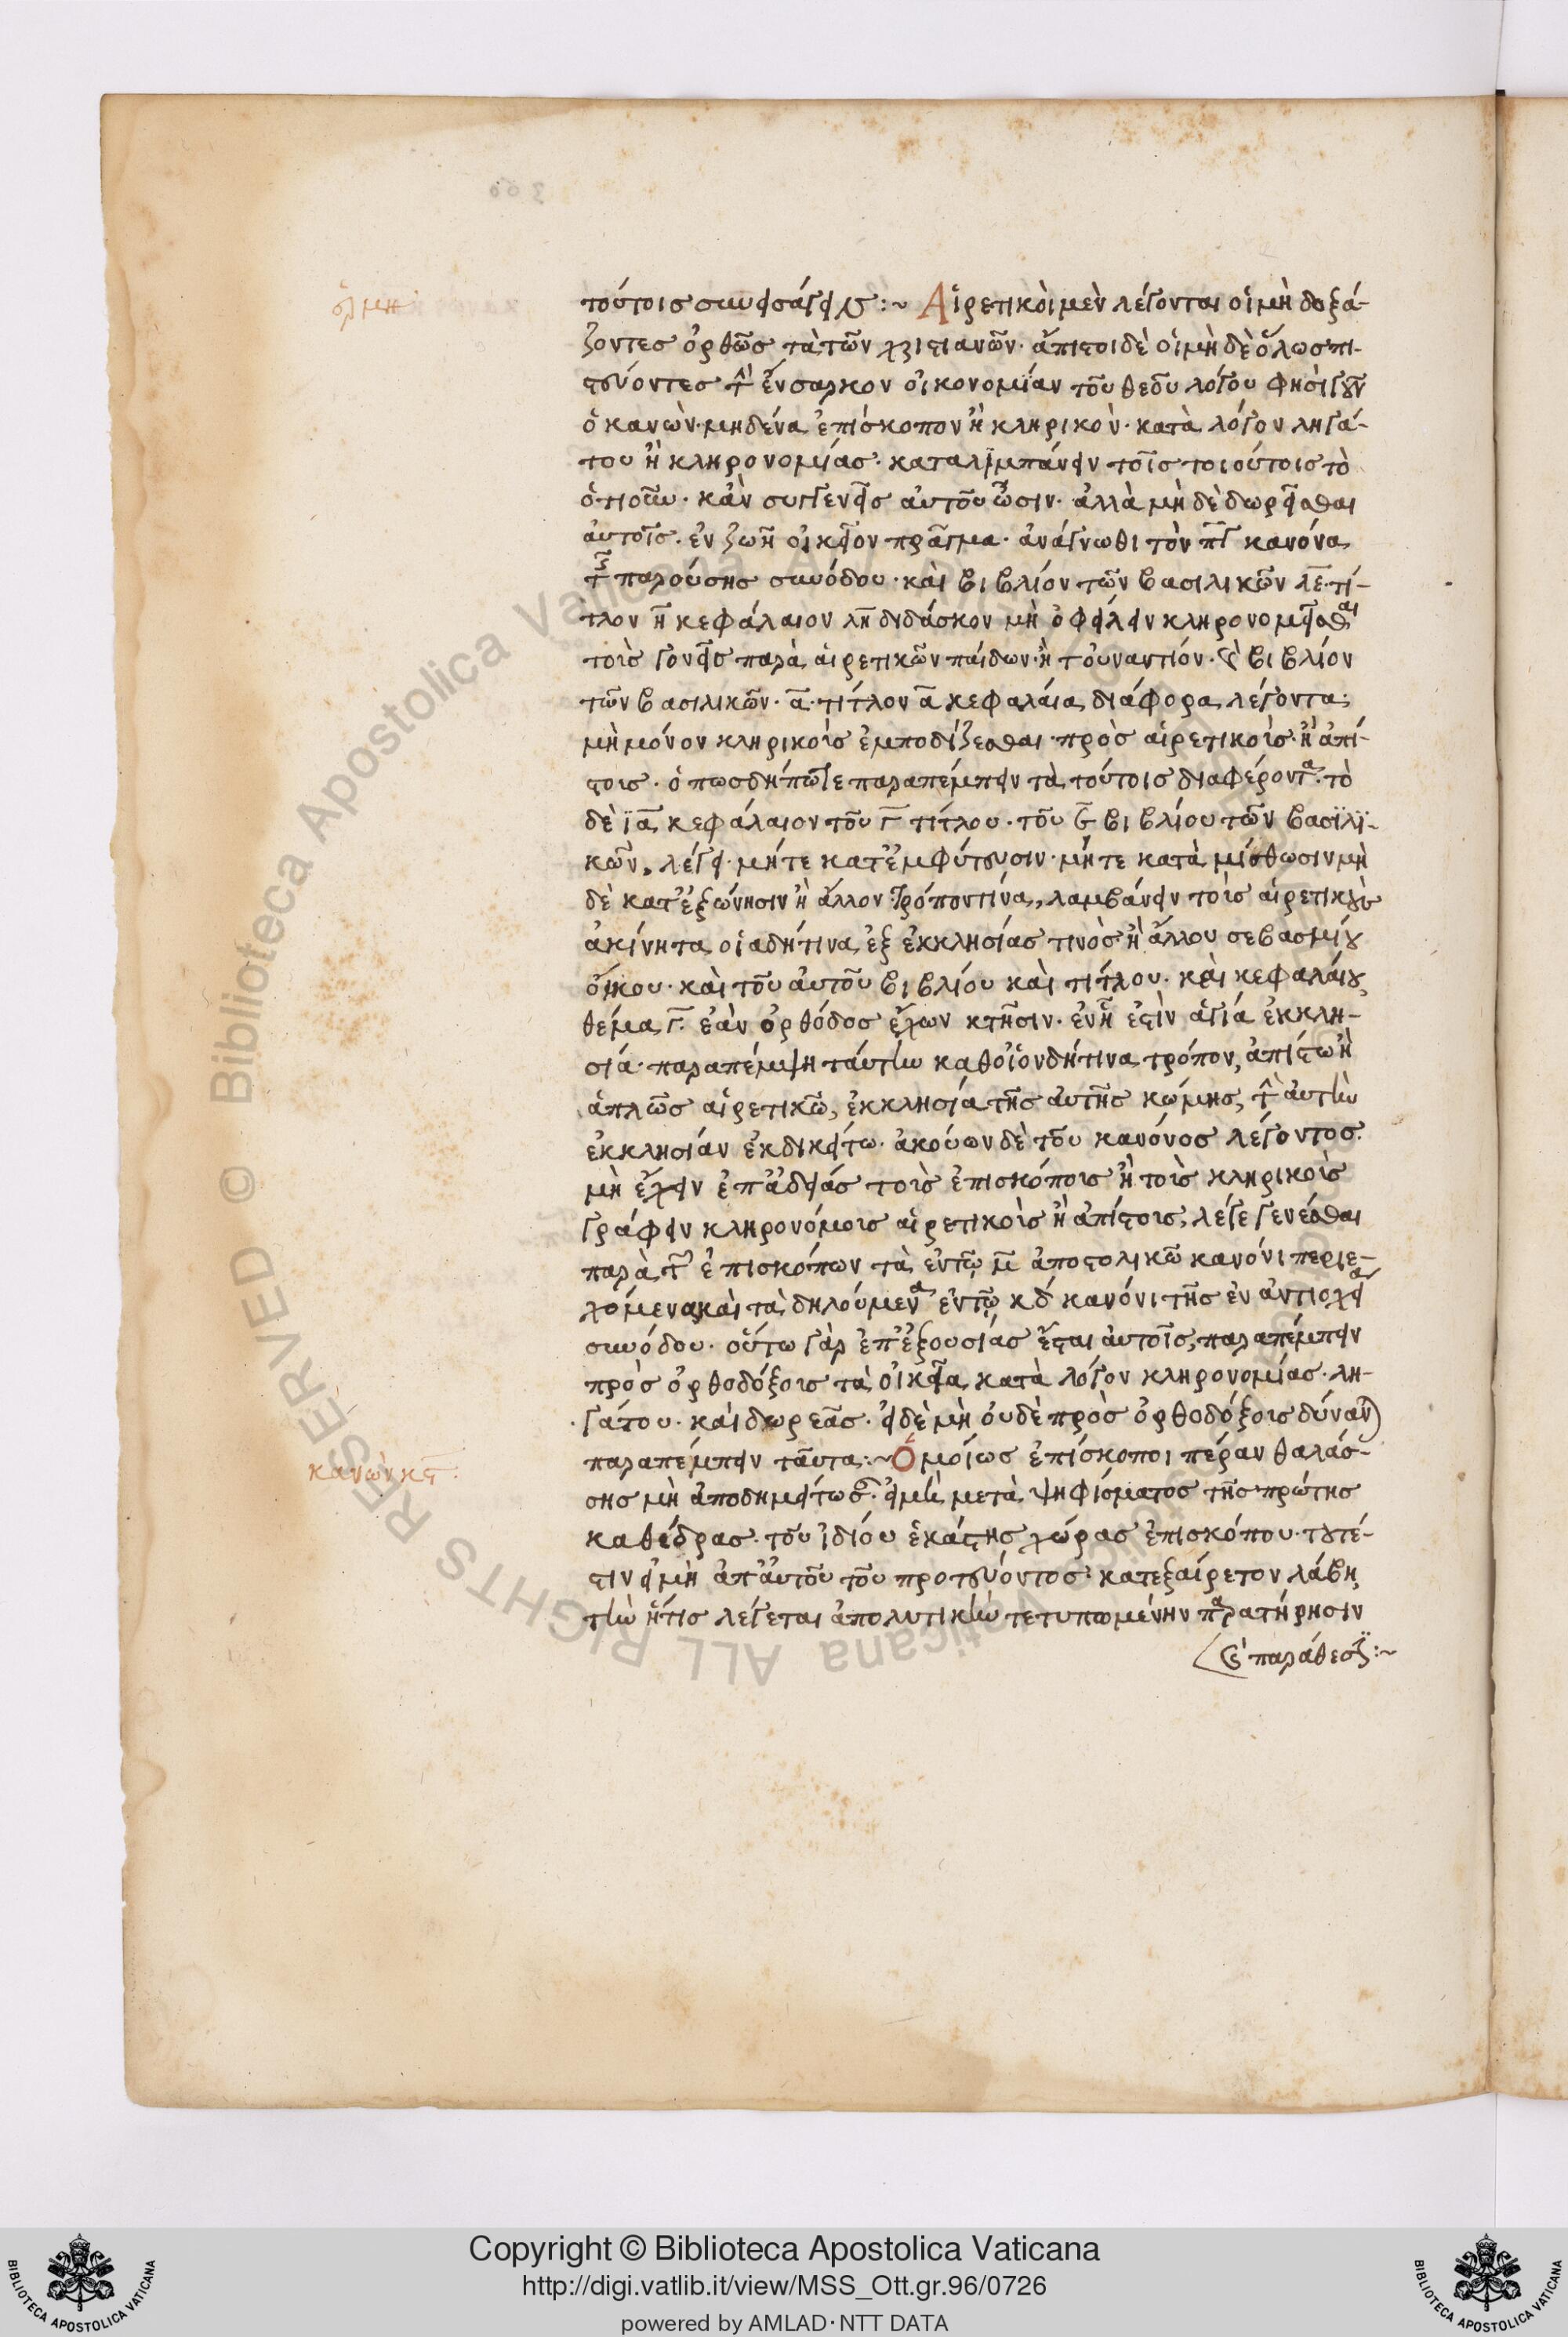 ἑρμη
τούτοις συνεισάγειν :~ Αἱρετικοὶ μὲν λέγονται οἱ μὴ δοξά-
ζοντες ὀρθῶς τὰ τῶν χριστιανῶν· ἄπιστοι δὲ οἱ μὴ δὲ ὅλως πι-
στεύοντες τὴν ἔνσαρκον οἰκονομίαν τοῦ θεοῦ λόγου φησὶ γοῦν
ὁ κανὼν· μηδένα ἐπίσκοπον ἢ κληρικὸν· κατὰ λόγον ληγά-
του ἢ κληρονομίας· καταλιμπάνειν τοῖς τοιούτοις τὸ
ὁτιοῦν· κἂν συγγενεῖς αὐτοῦ ὦσιν· ἀλλὰ μὴ δὲ δωρεῖσθαι
αὐτοῖς· ἐν ζωῇ οἰκεῖον πρᾶγμα· ἀνάγνωθι τὸν πγ κανόνα
τῆς παρούσης συνόδου· καὶ βιβλίον τῶν βασιλικῶν λε· τί-
τλον η κεφάλαιον λη διδάσκον μὴ ὀφείλειν κληρονομεῖσθαι
τοὶς γονεῖς παρὰ αἱρετικῶν παίδων· ἢ τοὐναντίον· καὶ βιβλίον
τῶν βασιλικῶν· α· τίτλον α κεφαλαία διάφορα λέγοντα·
μὴ μόνον κληρικοὶς ἐμποδίζεσθαι· πρὸς αἱρετικοὶς· ἢ ἀπί-
στοις· ὁπωσδήποτε παραπέμπειν τὰ τούτοις διαφέροντα· τὸ
δὲ ϊα κεφάλαιον τοῦ γ τίτλου· τοῦ ε βιβλίου τῶν βασιλϊ-
κῶν, λέγει· μήτε κατ' ἐμφύτευσιν· μήτε κατὰ μίσθωσιν μὴ
δὲ κατ' ἐξώνησιν ἢ ἄλλον τρόπον τίνα, λαμβάνειν τοὶς αἱρετικοὺς
ἀκίνητα οἱαδήτινα ἐξ ἐκκλησίας τινὸς ἢ ἄλλου σεβασμίου
οἴκου· καὶ τοῦ αὐτοῦ βιβλίου καὶ τίτλου· καὶ κεφαλαίου
θέμα γ· ἐὰν ὀρθόδος ἔχων κτῆσιν· ἐν ᾗ ἐστὶν ἁγία ἐκκλη-
σία· παραπέμψη ταύτην καθ' οἱονδήτινα τρόπον, ἀπίστω ἢ
ἁπλῶς αἱρετικῶ, ἐκκλησία τῆς αὐτῆς κώμης, τὴν αὐτὴν
ἐκκλησίαν ἐκδικείτω· ἀκούων δὲ τοῦ κανόνος λέγοντος·
μὴ ἔχειν ἐπ' ἀδείας τοὶς ἐπισκόποις ἢ τοὶς κληρικοὶς
γράφειν κληρονόμοις αἱρετικοὶς ἢ ἀπίστοις, λέγε γενέσθαι
παρὰ τῶν ἐπισκόπων τὰ ἐν τῷ μ ἀποστολικῶ κανόνι περιε-
χόμενα καὶ τὰ δηλούμενα ἐν τῷ κδ κανόνι τῆς ἐν ἀντιοχεία
συνόδου· οὕτω γὰρ ἐπ' ἐξουσίας ἔσται αὐτοῖς, παραπέμπειν
πρὸς ὀρθοδόξοις τὰ οἰκεῖα κατὰ λόγον κληρονομίας· λη-
γάτου· καὶ δωρεᾶς· εἰ δὲ μὴ οὐδὲ πρὸς ὀρθοδόξοις δύνανται
παραπέμπειν ταῦτα :~ Ὁμοίως ἐπίσκοποι πέραν θαλάσ-
κανὼν κϛ·
σης μὴ ἀποδημείτωσαν· εἰ μὴ μετὰ ψηφίσματος τῆς πρώτης
καθέδρας· τοῦ ἰδίου ἑκάστης χώρας ἐπισκόπου· τουτέ-
στιν εἰ μὴ ἀπ' αὐτοῦ τοῦ πρωτεύοντος· κατεξαίρετον λάβη
τὴν ἥτις λέγεται ἀπολυτικὴν τετυπωμένην παρατήρησιν
καὶ παράθεσιν :~
Copyright © Biblioteca Apostolica Vaticana
http://digi.vatlib.it/view/MSS_Ott.gr.96/0726
powered by AMLAD·NTT DATA
BIBLIOTECA APOSTOLICA VATICANA
BIBLIOTECA APOSTOLICA VATICANA